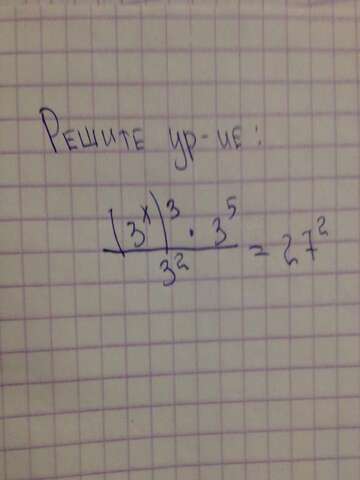 Решите ур-ие:
(3^x)^3 · 3^5 / 3^2 = 27^2